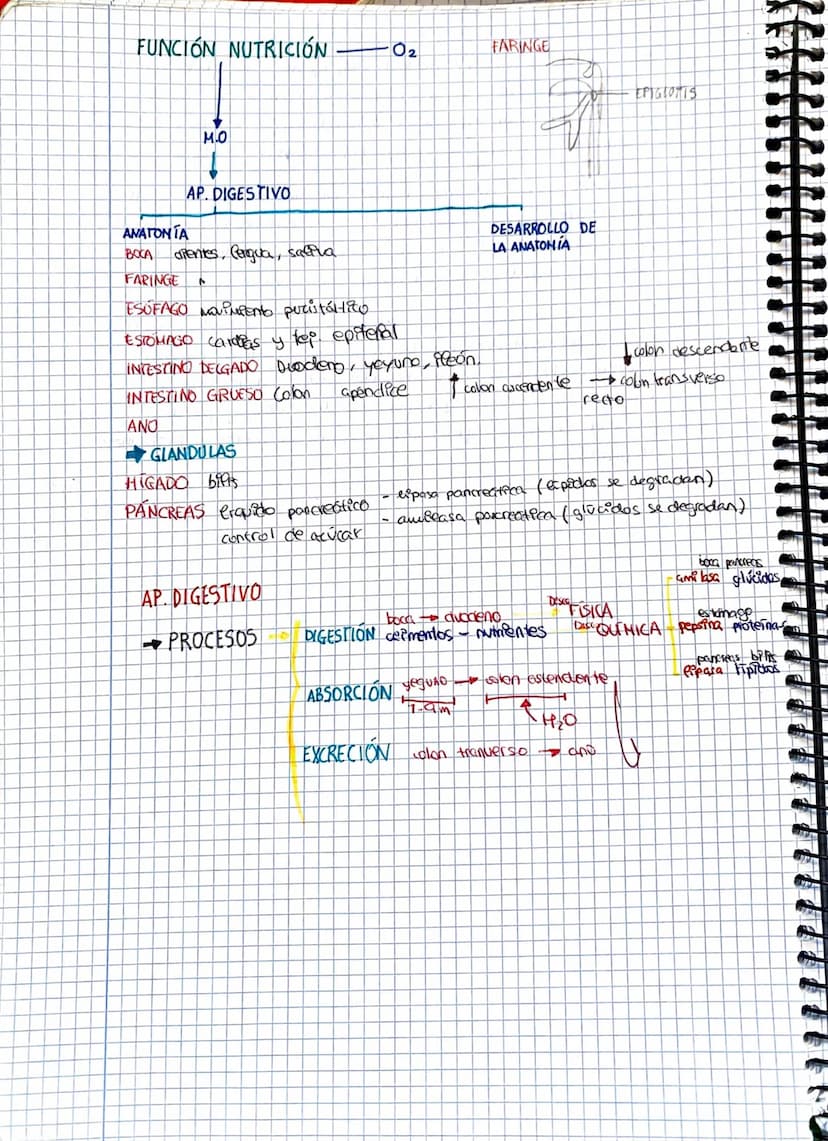 FUNCIÓN NUTRICIÓN — O2
FARINGE
EPIGLOTIS
M.O
AP. DIGESTIVO
ANATONÍA
DESARROLLO DE
LA ANATONÍA
BOCA dientes, lengua, saliva
FARINGE
ESÓFAGO movimiento peristáltico
ESTÓMAGO cardias y tej. epitelial
INTESTINO DELGADO Duodeno, yeyuno, íleón.
↓ colon descendente
INTESTINO GRUESO Colon apéndice ↑ colon ascendente → colon transverso
recto
ANO
→ GLANDULAS
HÍGADO bilis
PÁNCREAS líquido pancreático - lipasa pancreática (lípidos se degradan)
control de azúcar - amilasa pancreática (glúcidos se degradan)
AP. DIGESTIVO
→ PROCESOS
boca → duodeno
DIGESTIÓN alimentos - nutrientes
FÍSICA
QUÍMICA
boca pancreas
amilasa glúcidos
estómago
pepsina proteínas
pancreas bilis
lipasa lípidos
ABSORCIÓN yeyuno → colon ascendente
H2O
EXCRECIÓN colon tranverso → ano